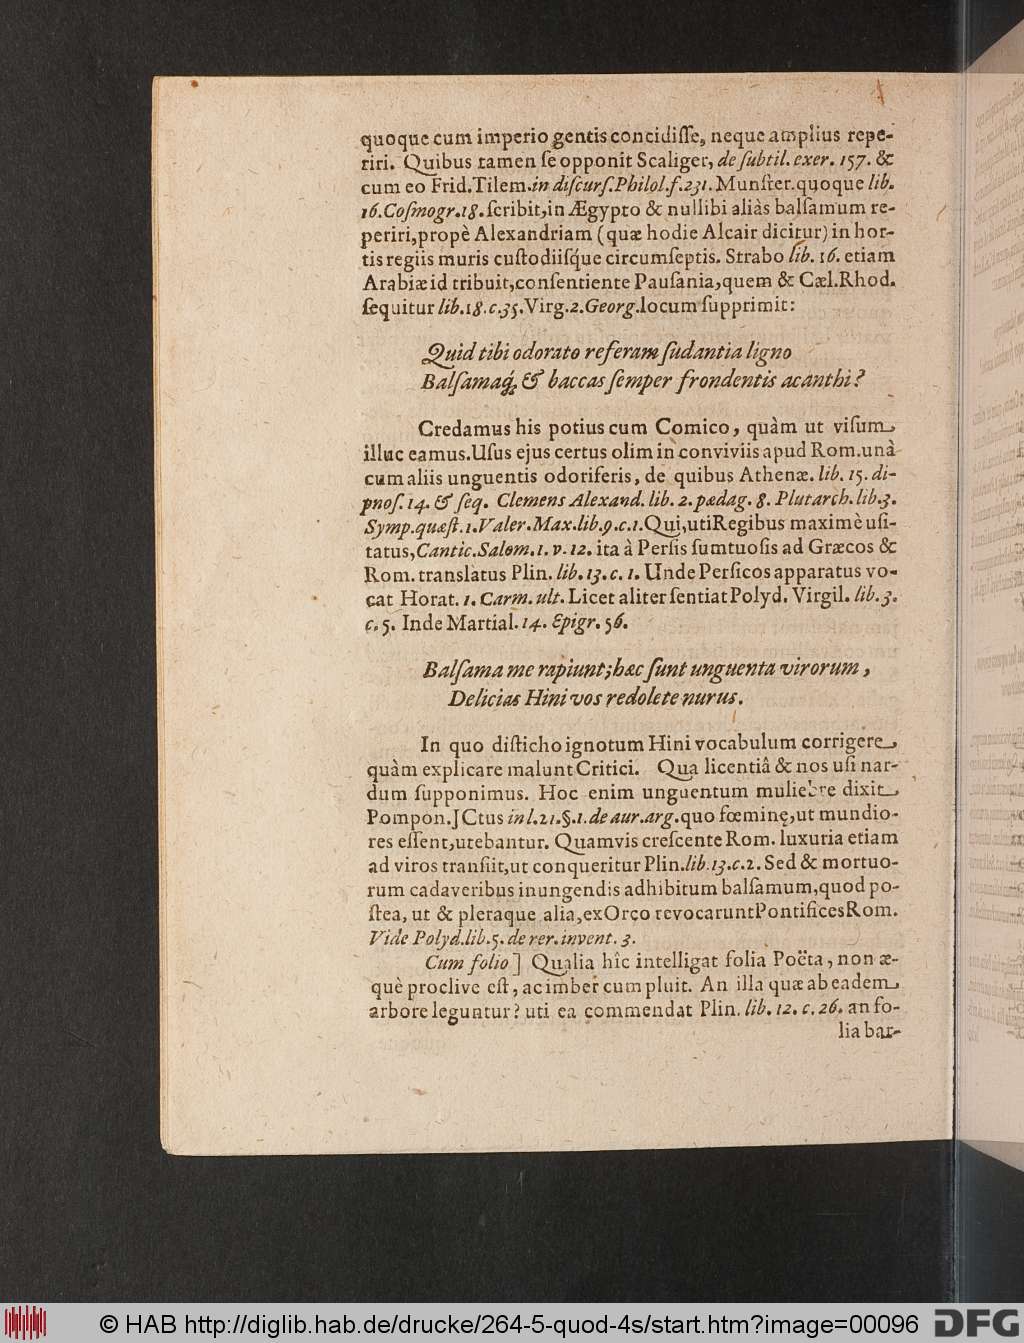 quoque cum imperio gentis concidiſſe, neque amplius repe-
riri. Quibus tamen ſe opponit Scaliger, de ſubtil. exer. 157. &
cum eo Frid. Tilem. in diſcurſ. Philol. f. 231. Munſter. quoque lib.
16. Coſmogr. 18. ſcribit, in Ægypto & nullibi aliàs balſamum re-
periri, propè Alexandriam (quæ hodie Alcair dicitur) in hor-
tis regiis muris cuſtodiiſq́ue circumſeptis. Strabo lib. 16. etiam
Arabiæ id tribuit, conſentiente Pauſania, quem & Cæl. Rhod.
ſequitur lib. 18. c. 35. Virg. 2. Georg. locum ſupprimit:
Quid tibi odorato referam ſudantia ligno
Balſamaq́; & baccas ſemper frondentis acanthi?
Credamus his potius cum Comico, quàm ut viſum
illuc eamus. Uſus ejus certus olim in conviviis apud Rom. unà
cum aliis unguentis odoriferis, de quibus Athenæ. lib. 15. di-
pnoſ. 14. & ſeq. Clemens Alexand. lib. 2. pædag. 8. Plutarch. lib. 3.
Symp. quæſt. 1. Valer. Max. lib. 9. c. 1. Qui, uti Regibus maximè uſi-
tatus, Cantic. Salom. 1. v. 12. ita à Perſis ſumtuoſis ad Græcos &
Rom. translatus Plin. lib. 13. c. 1. Unde Perſicos apparatus vo-
cat Horat. 1. Carm. ult. Licet aliter ſentiat Polyd. Virgil. lib. 3.
c. 5. Inde Martial. 14. Epigr. 56.
Balſama me rapiunt; hæc ſunt unguenta virorum,
Delicias Hini vos redolete nurus.
In quo diſticho ignotum Hini vocabulum corrigere,
quàm explicare malunt Critici. Qua licentiâ & nos uſi nar-
dum ſupponimus. Hoc enim unguentum muliebre dixit
Pompon. JCtus in l. 21. §. 1. de aur. arg. quo fœminę, ut mundio-
res eſſent, utebantur. Quamvis creſcente Rom. luxuria etiam
ad viros tranſiit, ut conqueritur Plin. lib. 13. c. 2. Sed & mortuo-
rum cadaveribus inungendis adhibitum balſamum, quod po-
ſtea, ut & pleraque alia, ex Orco revocarunt Pontifices Rom.
Vide Polyd. lib. 5. de rer. invent. 3.
Cum folio] Qualia hîc intelligat folia Poëta, non æ-
què proclive eſt, ac imber cum pluit. An illa quæ ab eadem
arbore leguntur? uti ea commendat Plin. lib. 12. c. 26. an fo-
lia bar-
© HAB http://diglib.hab.de/drucke/264-5-quod-4s/start.htm?image=00096
DFG